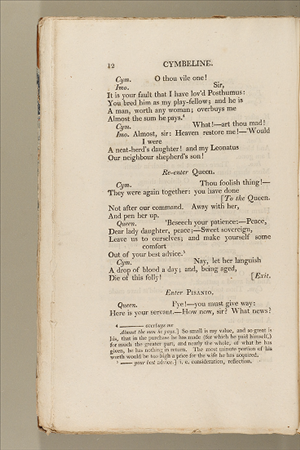 12 CYMBELINE.
Cym. O thou vile one!
Imo. Sir,
It is your fault that I have lov'd Posthumus:
You bred him as my play-fellow; and he is
A man, worth any woman; overbuys me
Almost the sum he pays.⁴
Cym. What!—art thou mad!
Imo. Almost, sir: Heaven restore me!—'Would
I were
A neat-herd's daughter! and my Leonatus
Our neighbour shepherd's son!
Re-enter Queen.
Cym. Thou foolish thing!—
They were again together: you have done
[To the Queen.
Not after our command. Away with her,
And pen her up.
Queen. 'Beseech your patience:—Peace,
Dear lady daughter, peace;—Sweet sovereign,
Leave us to ourselves; and make yourself some
comfort
Out of your best advice.⁵
Cym. Nay, let her languish
A drop of blood a day; and, being aged,
Die of this folly! [Exit.
Enter PISANIO.
Queen. Fye!—you must give way:
Here is your servant.—How now, sir? What news?
⁴ —— overbuys me
Almost the sum he pays.] So small is my value, and so great is
his, that in the purchase he has made (for which he paid himself,)
for much the greater part, and nearly the whole, of what he has
given, he has nothing in return. The most minute portion of his
worth would be too high a price for the wife he has acquired.
⁵ —— your best advice.] i. e. consideration, reflection.